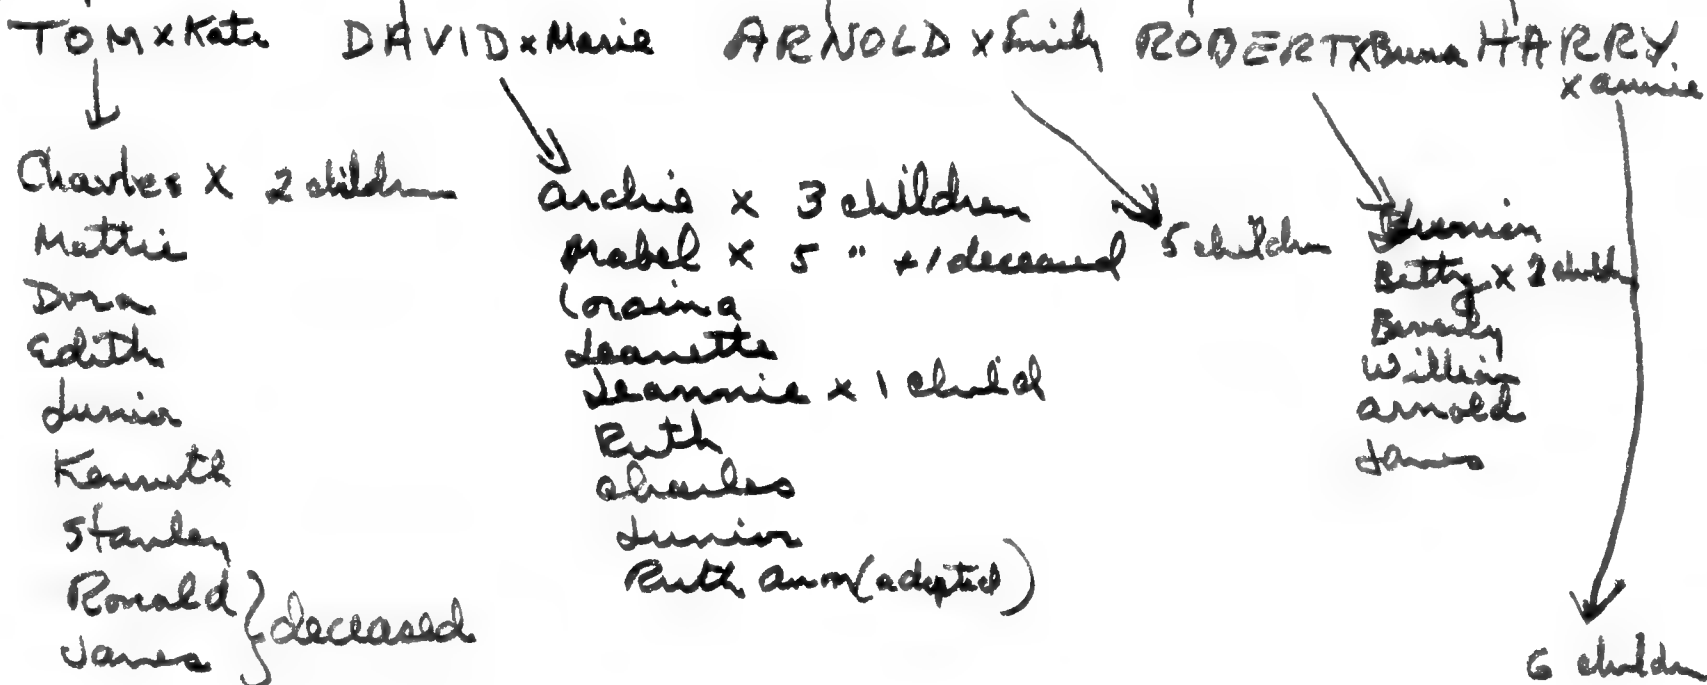 TOM x Kate DAVID x Marie ARNOLD x Emily ROBERT x Buna HARRY
x Annie
Charles x 2 children
Mattie
Dora
Edith
Junior
Kenneth
Stanley
Ronald
James
} deceased
Archie x 3 children
Mabel x 5 " + 1 deceased
Loraina
Jeanette
Jeannie x 1 child
Ruth
Charles
Junior
Ruth Ann (adopted)
5 children
Betty x 2 children
Beverly
William
Arnold
James
6 children